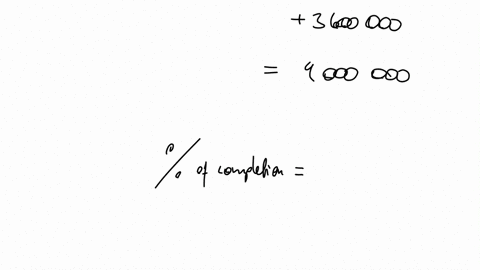 + 3 600 000
= 9 000 000
% of completion =